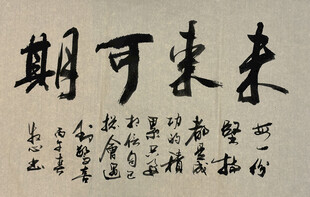 未来可期
每一份
堅持
都是成
功的積
累只要
相信自己
總會遇
到驚喜
丙午春